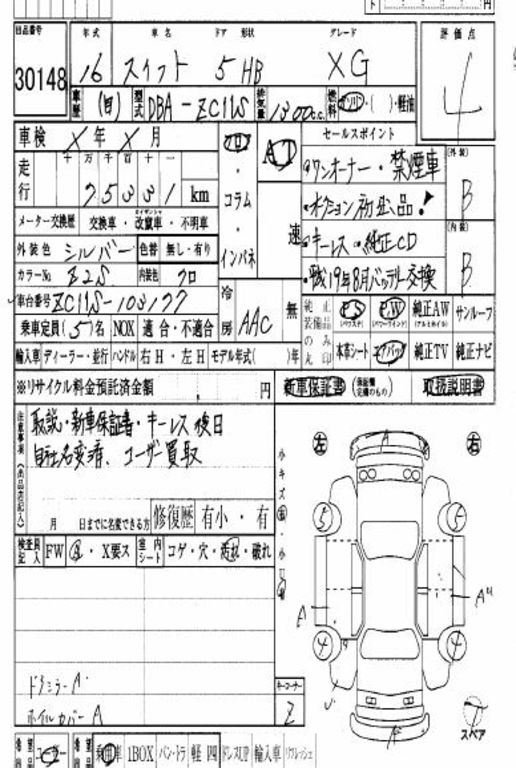 円
出品番号 年式 車名 ドア 形状 グレード 評価点
30148 16 スイフト 5 HB XG 4
車歴 (自) 型式 DBA-ZC11S 排気量 1300c.c. 燃料 ガソリン・( )・軽油
車検 X年X月 フロア・コラム・インパネ AT 速 セールスポイント
・ワンオーナー・禁煙車
・オークション初出品!
・キーレス・純正CD
・H19年8月バッテリー交換
(外装) B
(内装) B
走行 十万千百十一 75331 km
メーター交換歴 交換車・改竄車・不明車
外装色 シルバー 色替 無し・有り
カラーNo Z2S 内装色 クロ
車台番号 ZC11S-103177
冷房 AAC 無
純正装備品のみ丸印 PS (パワステ) PW (パワーウインド) 純正AW (アルミホイル) サンルーフ
乗車定員(5)名 NOX 適合・不適合
本革シート エアバッグ 純正TV 純正ナビ
輸入車 ディーラー・並行 ハンドル 右H・左H モデル年式( )年
※リサイクル料金預託済金額 円 新車保証書 (保証欄完備のもの) 取扱説明書
注意事項(出品店記入)
取説・新車保証書・キーレス後日
自社名変済、ユーザー買取
月 日までに名変できる方 修復歴 有小・有
検査員記入 FW A・X要ス 室内シート コゲ・穴・汚れ・破れ
小キズ
左 右
A
5 5
A A
4 4
A
スペア
ドアミラーA
ホイルカバーA
キーコーナー
2
希望 コーナー 希望 乗用車 1BOX バン・トラ 軽四 ドレスUP 輸入車 リフレッシュ